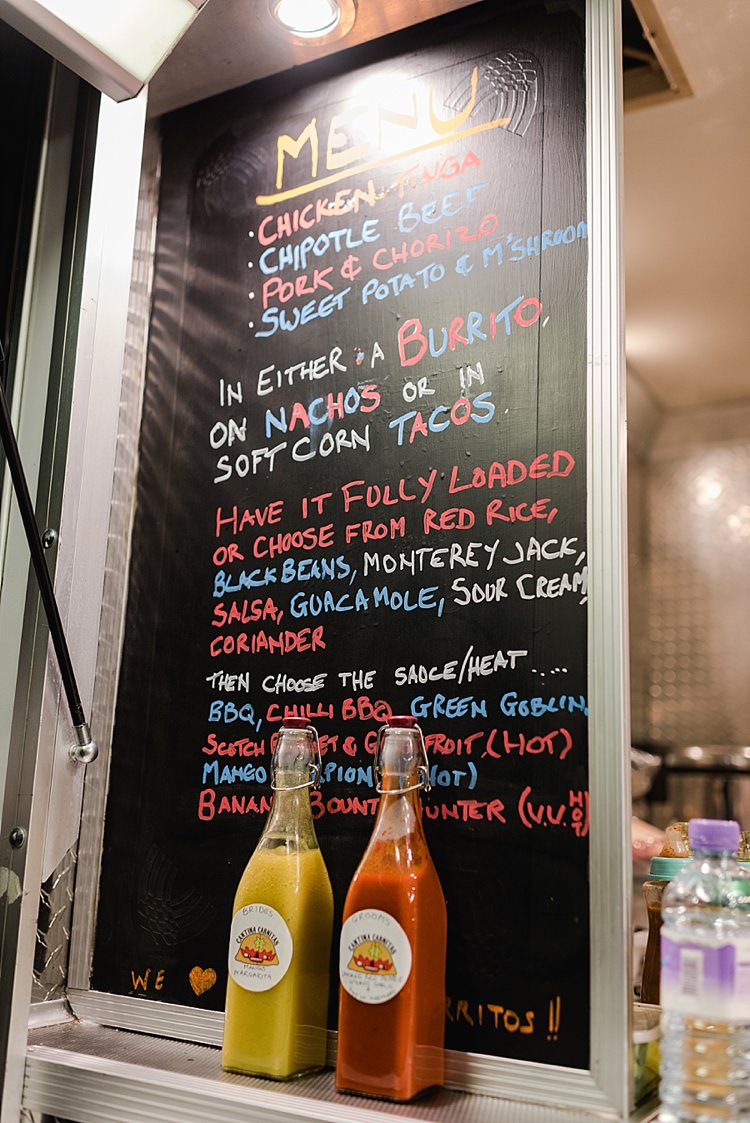 MENU
· CHICKEN TINGA
· CHIPOTLE BEEF
· PORK & CHORIZO
· SWEET POTATO & M'SHROOM
IN EITHER A BURRITO,
ON NACHOS OR IN
SOFT CORN TACOS
HAVE IT FULLY LOADED
OR CHOOSE FROM RED RICE,
BLACK BEANS, MONTEREY JACK,
SALSA, GUACAMOLE, SOUR CREAM,
CORIANDER
THEN CHOOSE THE SAUCE/HEAT .....
BBQ, CHILLI BBQ, GREEN GOBLIN,
SCOTCH & FRUIT, (HOT)
MANGO HOT)
BANAN BOUNT HUNTER (V.V. HOT)
BRIDES
CANTINA CARNITAS
MANGO
MARGARITA
GROOMS
CANTINA CARNITAS
WE ♥ RRITOS !!